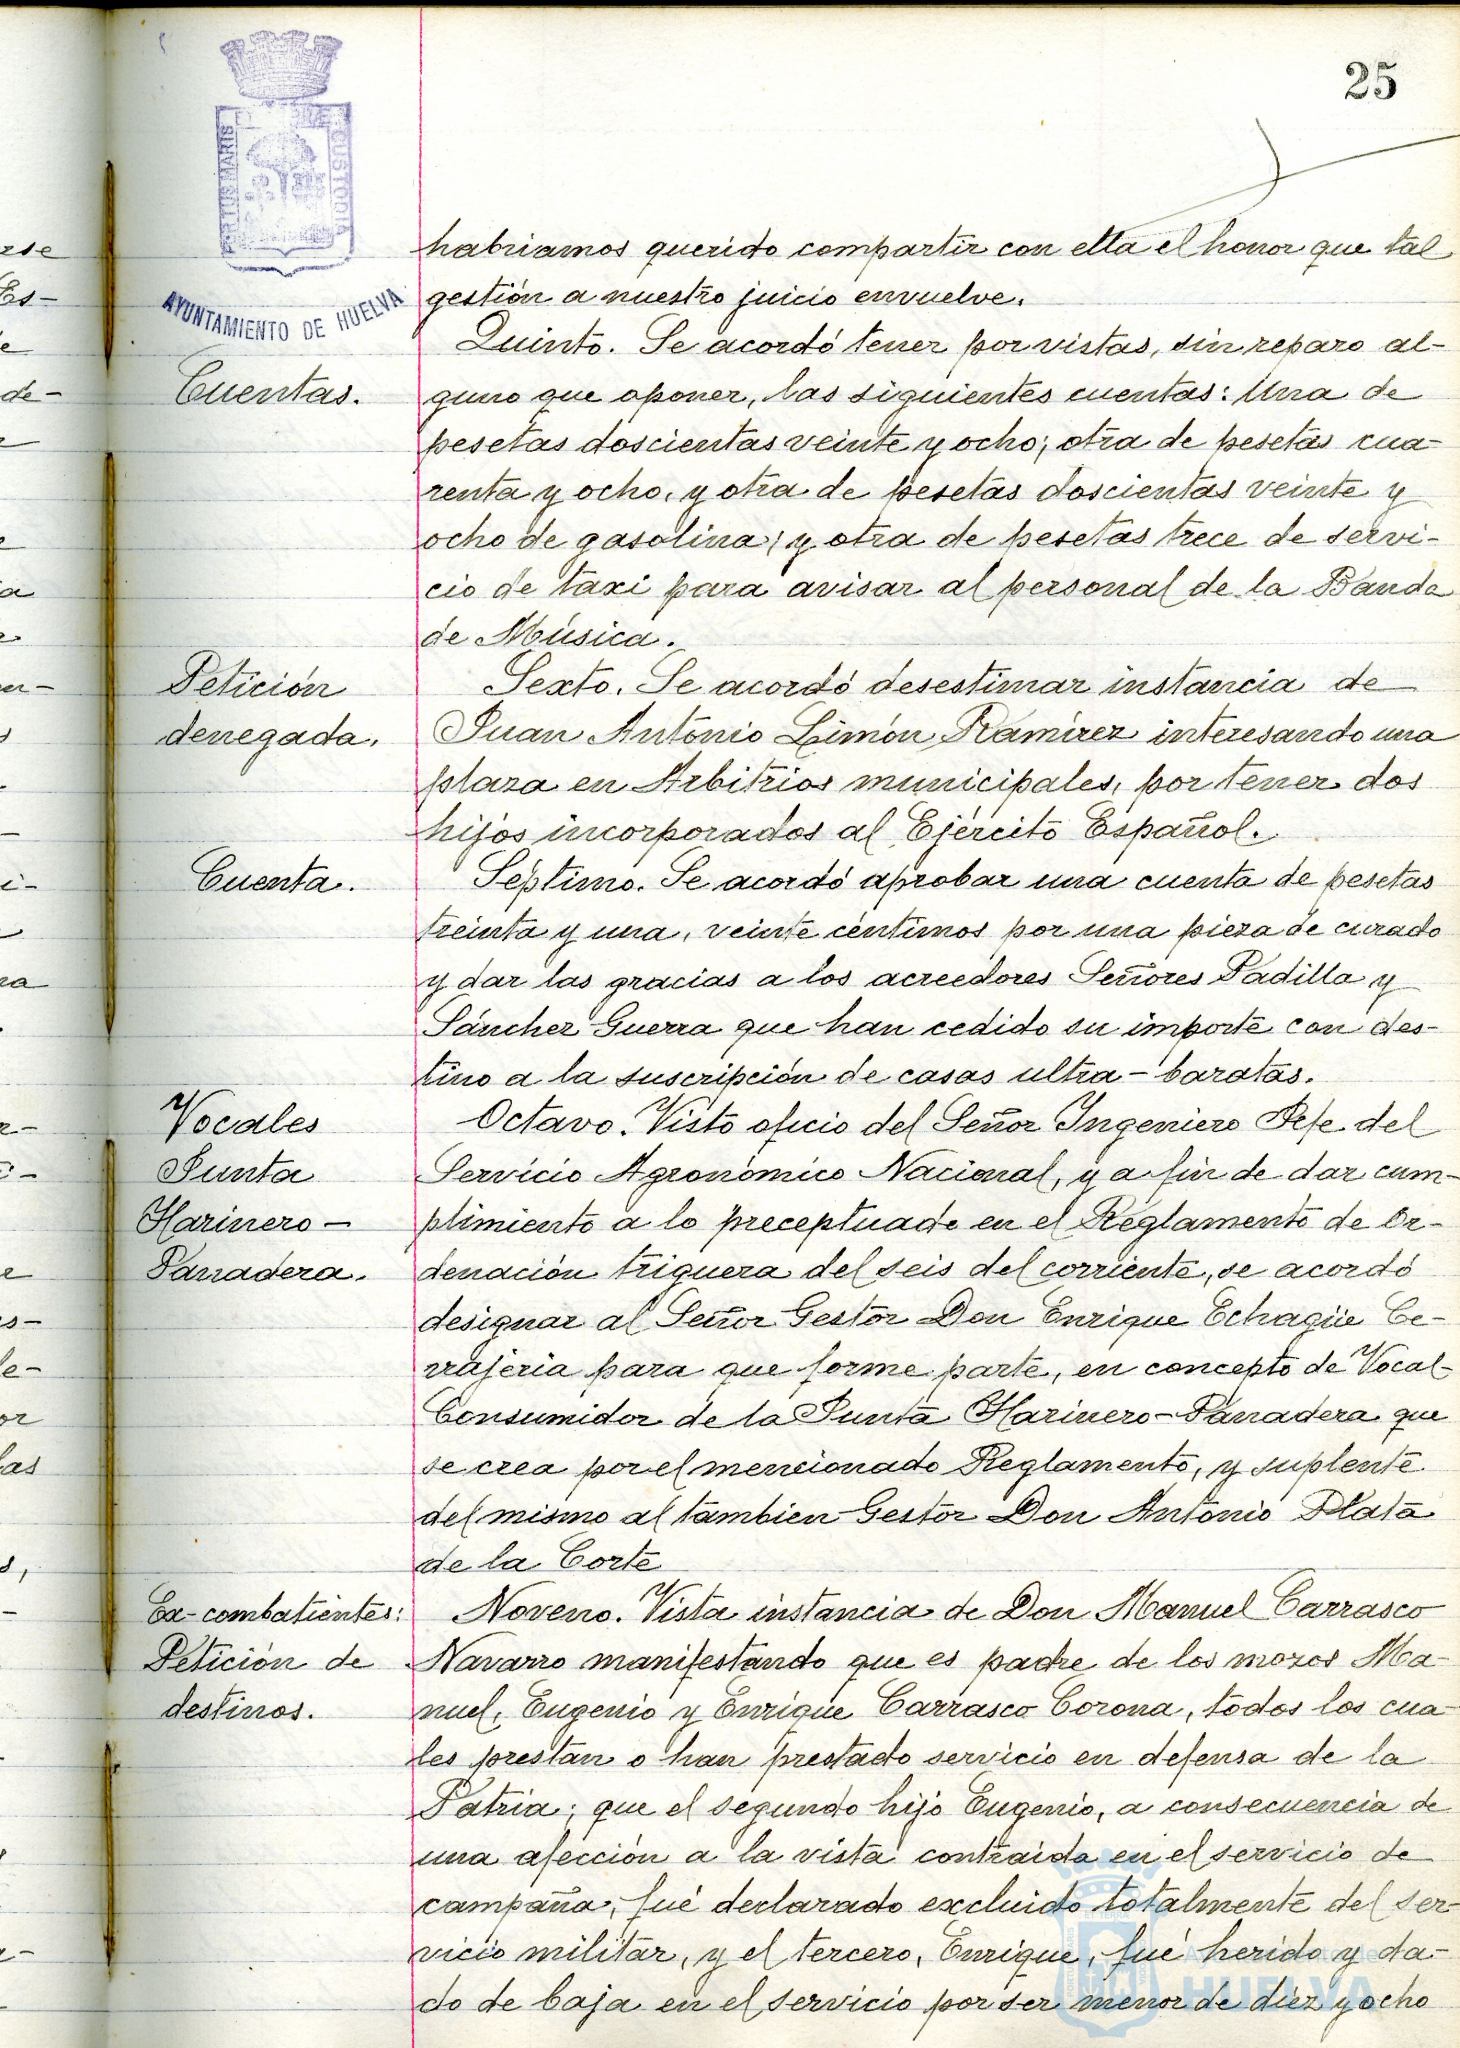 25
PORTUS MARIS
CUSTODIA
AYUNTAMIENTO DE HUELVA
habriamos querido compartir con ella el honor que tal
gestión a nuestro juicio envuelve.
Quinto. Se acordó tener por vistas, sin reparo al-
Cuentas.
guno que oponer, las siguientes cuentas: Una de
pesetas doscientas veinte y ocho; otra de pesetas cua-
renta y ocho, y otra de pesetas doscientas veinte y
ocho de gasolina; y otra de pesetas trece de servi-
cio de taxi para avisar al personal de la Banda
de Música.
Petición
denegada.
Sexto. Se acordó desestimar instancia de
Juan António Limón Ramírez interesando una
plaza en Arbitrios municipales, por tener dos
hijos incorporados al Ejército Español.
Cuenta.
Séptimo. Se acordó aprobar una cuenta de pesetas
treinta y una, veinte céntimos por una pieza de curado
y dar las gracias a los acreedores Señores Padilla y
Sánchez Guerra que han cedido su importe con des-
tino a la suscripción de casas ultra-baratas.
Vocales
Junta
Harinero-
Panadera.
Octavo. Visto oficio del Señor Ingeniero Jefe del
Servicio Agronómico Nacional, y a fin de dar cum-
plimiento a lo preceptuado en el Reglamento de Or-
denación triguera del seis del corriente, se acordó
designar al Señor Gestor Don Enrique Echagüe Ce-
rrajeria para que forme parte, en concepto de Vocal-
Consumidor de la Junta Harinero-Panadera que
se crea por el mencionado Reglamento, y suplente
del mismo al tambien Gestor Don António Plata
de la Corte
Ex-combatientes:
Petición de
destinos.
Noveno. Vista instancia de Don Manuel Carrasco
Navarro manifestando que es padre de los mozos Ma-
nuel, Eugenio y Enrique Carrasco Corona, todos los cua-
les prestan o han prestado servicio en defensa de la
Patria; que el segundo hijo Eugenio, a consecuencia de
una afección a la vista contraida en el servicio de
campaña, fué declarado excluido totalmente del ser-
vicio militar, y el tercero, Enrique, fué herido y da-
do de baja en el servicio por ser menor de diez y ocho
HUELVA